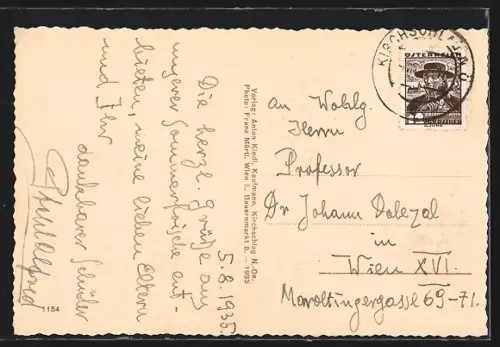 5.8.1935
Die herzl. Grüße aus
unserer Sommerfrische ent-
bieten, meine lieben Eltern
und Ihr
dankbarer Schüler
Alfred
1154
Verlag: Anton Kindl, Kaufmann, Kirchschlag N.-Oe.
Photo: Franz Mörtl, Wien I., Bauernmarkt 8. — 1935
KIRCHSCHLAG
ÖSTERREICH
An Wohlg.
Herrn
Professor
Dr Johann Dolezal
in
Wien XVI.
Maroltingergasse 69-71.